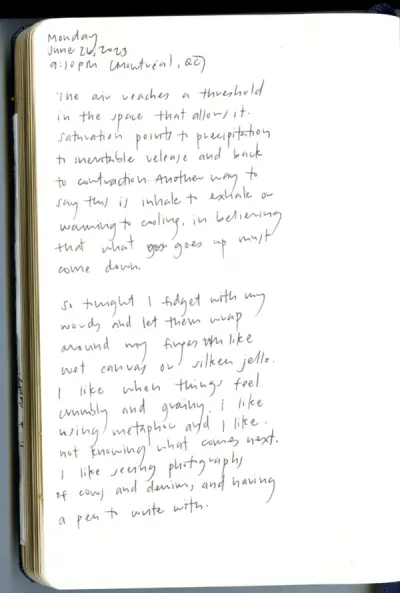 Monday
June 26, 2023
9:10 PM (Montréal, QC)
The air reaches a threshold
in the space that allows it.
Saturation points to precipitation
to inevitable release and back
to contraction. Another way to
say this is inhale to exhale or
warming to cooling, in believing
that what goes up must
come down.
So tonight I fidget with my
words and let them wrap
around my fingers like
wet canvas or silken jello.
I like when things feel
crumbly and grainy. i like
using metaphor and I like
not knowing what comes next.
I like seeing photographs
of cows and denim, and having
a pen to write with.